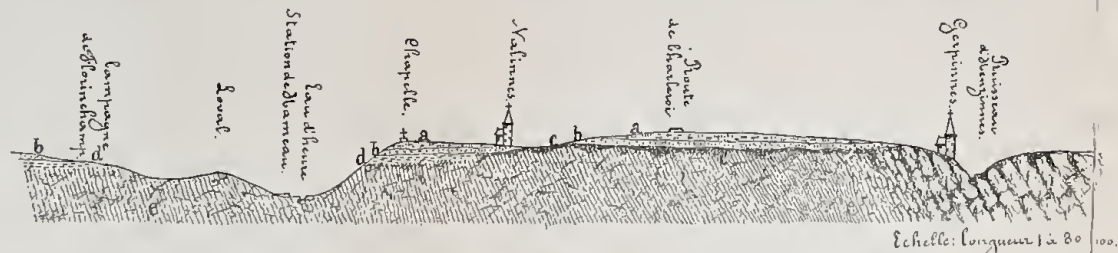 Campagne
de Florinchamp
Loval.
Station de Hameau
Eau d'heure
Chapelle.
Nalinnes.
Route
de Charleroi
Gerpinnes.
Ruisseau
d'Hanzinnes.
b
d
d
b
a
c
b
a
Echelle: longueur 1 à 80
100.